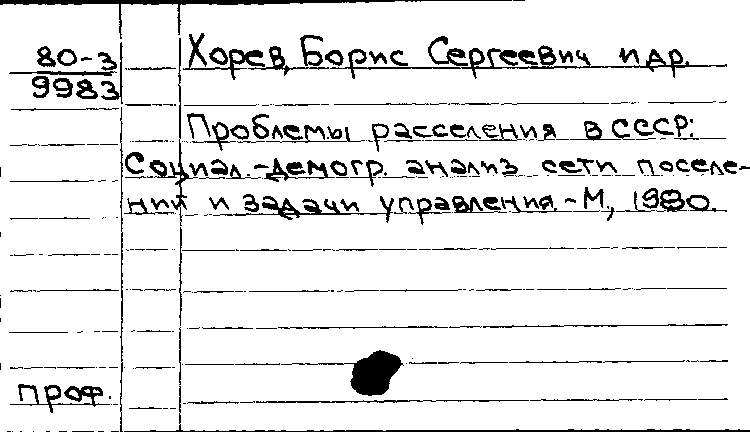 80-3
9983
Хорев, Борис Сергеевич и др.
Проблемы расселения в СССР:
Социал.-демогр. анализ сети поселе-
ний и задачи управления.-М., 1980.
проф.